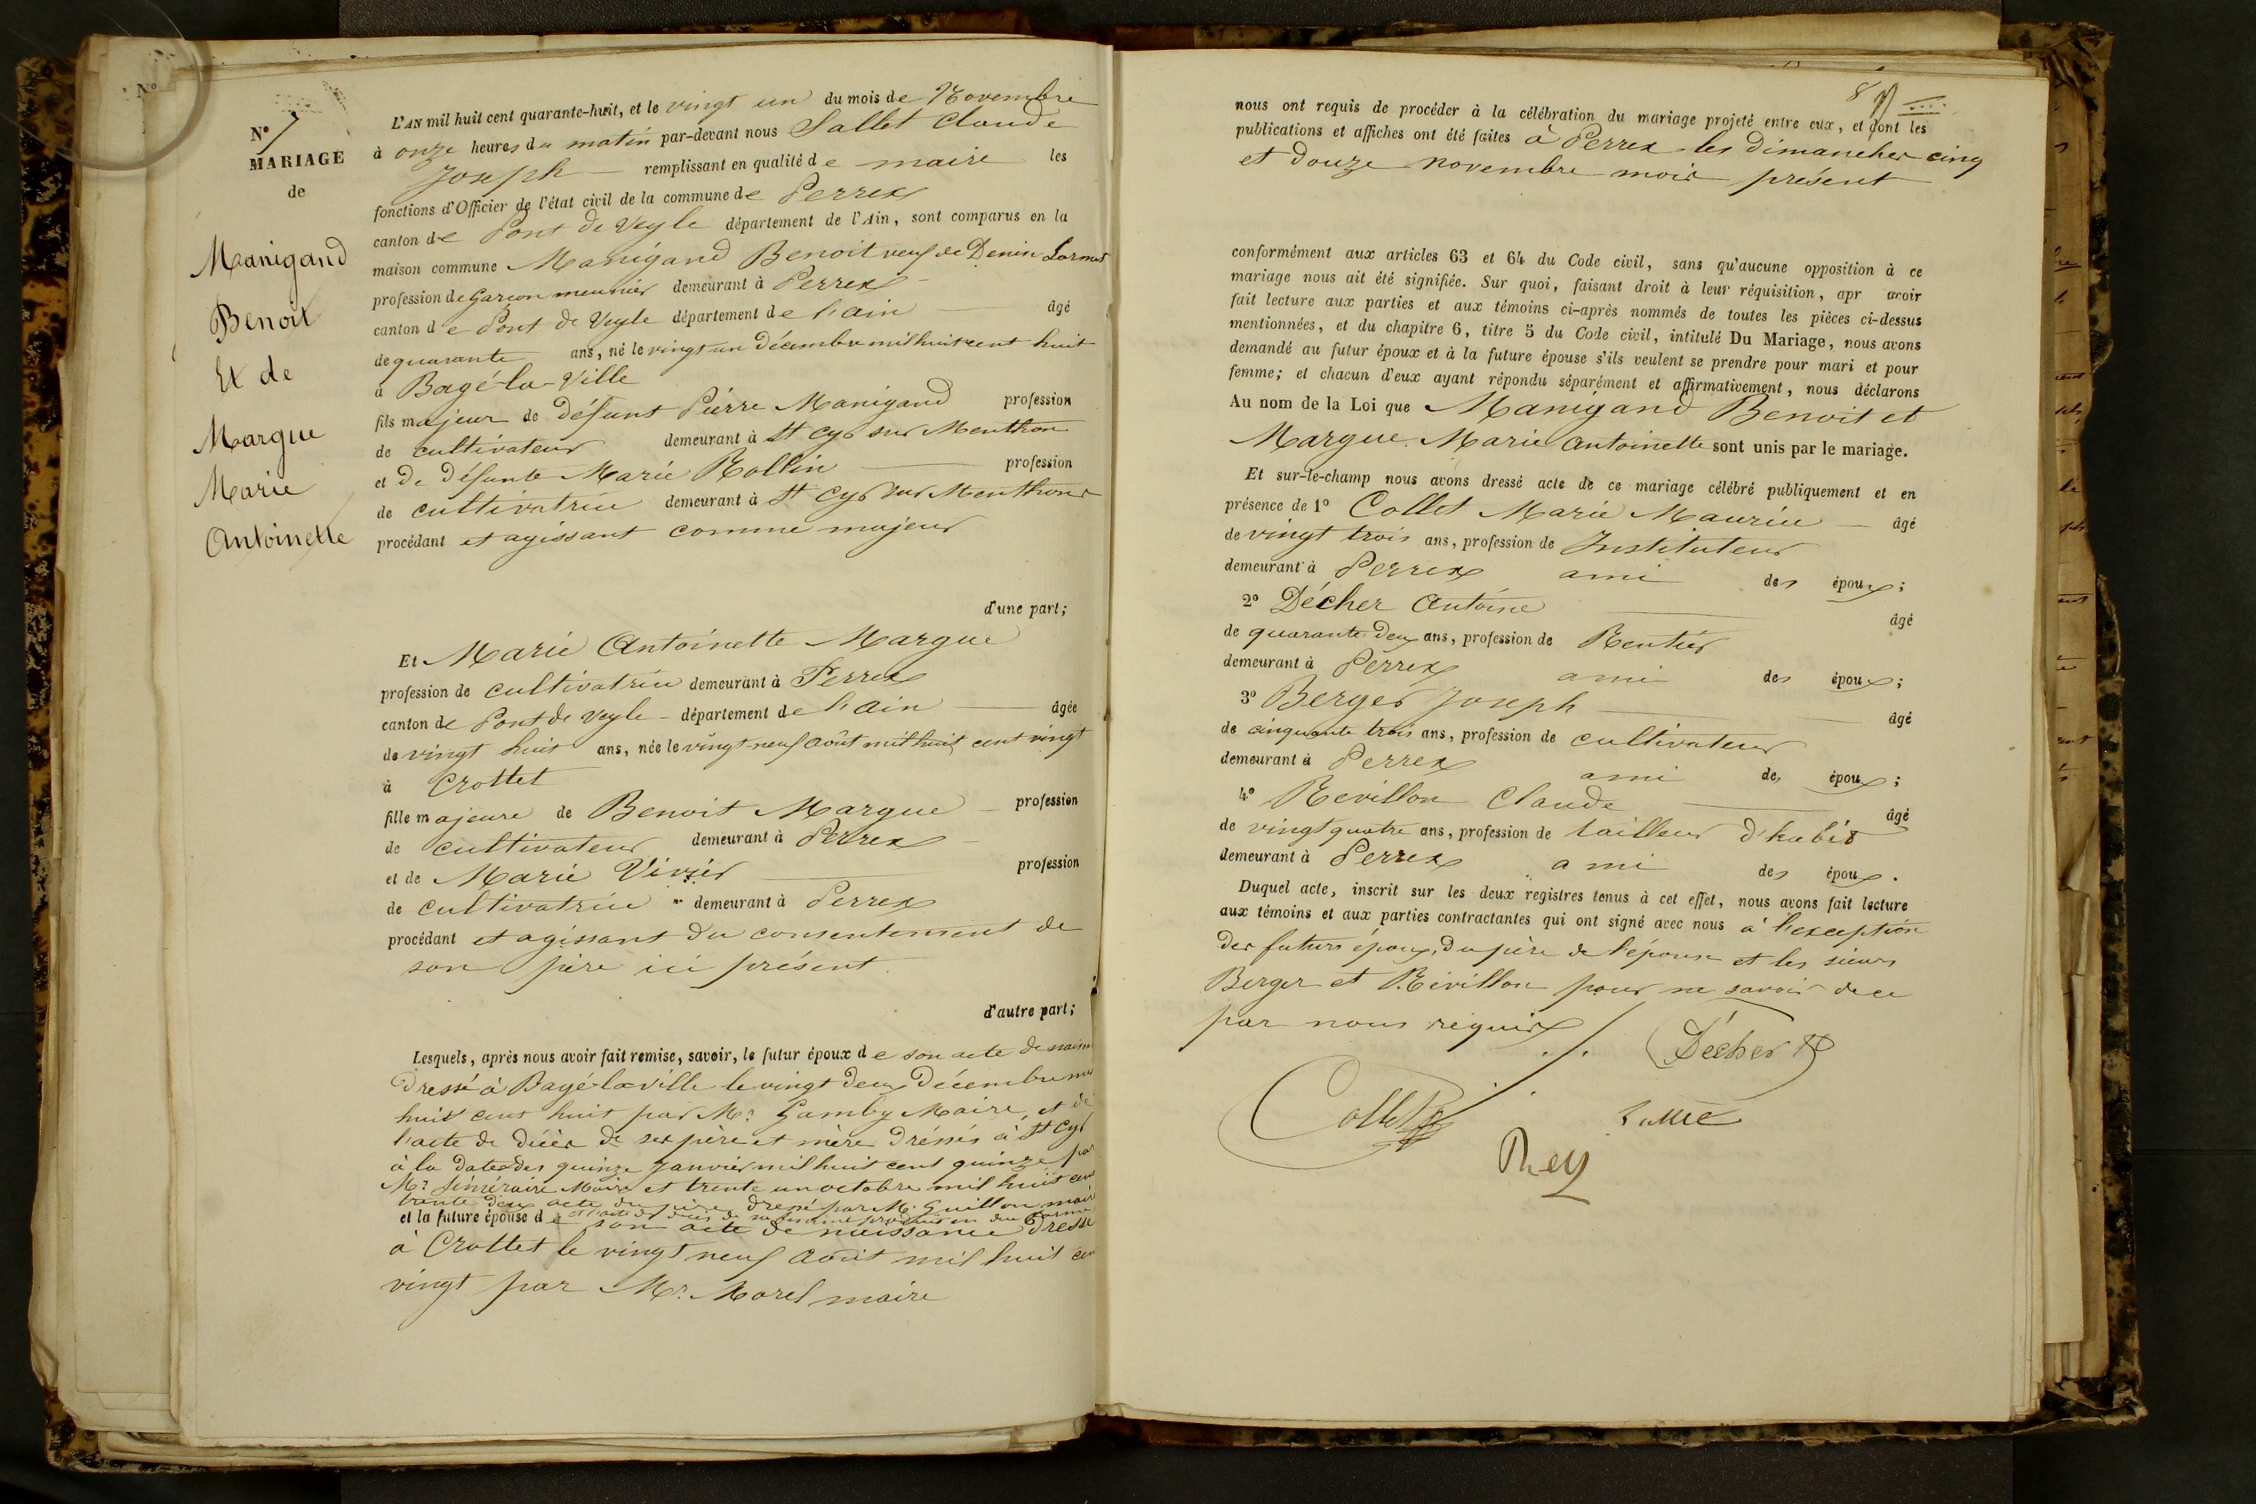 N°
N° 7
MARIAGE
de
Manigand
Benoit
Et de
Margue
Marie
Antoinette
L'AN mil huit cent quarante-huit, et le vingt un du mois de Novembre
à onze heures du matin par-devant nous Sallet Claude
Joseph remplissant en qualité de maire les
fonctions d'Officier de l'état civil de la commune de Perrex
canton de Pont de Veyle département de l'Ain, sont comparus en la
maison commune Manigand Benoit veuf de Denise
profession de Garcon meunier demeurant à Perrex
canton de Pont de Veyle département de l'ain âgé
de quarante ans, né le vingt un Décembre mil huit cent huit
à Bagé-la-Ville
fils majeur de défunt Pierre Manigand profession
de cultivateur demeurant à St Cyr sur Menthon
et de défunte Marie Rollin profession
de cultivatrice demeurant à St Cyr sur Menthon
procédant et agissant comme majeur
d'une part;
Et Marie Antoinette Margue
profession de cultivatrice demeurant à Perrex
canton de Pont de Veyle département de l'ain âgée
de vingt huit ans, née le vingt-neuf août mil huit cent vingt
à Crottet
fille majeure de Benoit Margue profession
de cultivateur demeurant à Perrex
et de Marie Vivier profession
de cultivatrice demeurant à Perrex
procédant et agissant du consentement de
son père ici présent
d'autre part;
Lesquels, après nous avoir fait remise, savoir, le futur époux de son acte de
Dressé à Bagé-la-ville le vingt deux Décembre
huit cent huit par Mr. Gamby Maire, et de
l'acte de décès de ses père et mère dréssés à St Cyr
à la date des quinze Janvier mil huit cent quinze par
Mr. Maire et trente un octobre mil huit cent
trente deux acte du père dressé par M. Guillon maire
et la future épouse de son acte de naissance dressé
à Crottet le vingt neuf Août mil huit cent
vingt par Mr. Morel maire
8
nous ont requis de procéder à la célébration du mariage projeté entre eux, et dont les
publications et affiches ont été faites à Perrex les dimanches cinq
et douze novembre mois présent
conformément aux articles 63 et 64 du Code civil, sans qu'aucune opposition à ce
mariage nous ait été signifiée. Sur quoi, faisant droit à leur réquisition, apr avoir
fait lecture aux parties et aux témoins ci-après nommés de toutes les pièces ci-dessus
mentionnées, et du chapitre 6, titre 5 du Code civil, intitulé Du Mariage, nous avons
demandé au futur époux et à la future épouse s'ils veulent se prendre pour mari et pour
femme; et chacun d'eux ayant répondu séparément et affirmativement, nous déclarons
Au nom de la Loi que Manigand Benoit et
Margue Marie Antoinette sont unis par le mariage.
Et sur-le-champ nous avons dressé acte de ce mariage célébré publiquement et en
présence de 1° Collet Marie Maurice âgé
de vingt trois ans, profession de Instituteur
demeurant à Perrex ami des époux;
2° Décher Antoine âgé
de quarante deux ans, profession de Rentier
demeurant à Perrex ami des époux;
3° Berger Joseph âgé
de cinquante trois ans, profession de cultivateur
demeurant à Perrex ami des époux;
4° Revillon Claude âgé
de vingt quatre ans, profession de tailleur d'habis
demeurant à Perrex ami des époux.
Duquel acte, inscrit sur les deux registres tenus à cet effet, nous avons fait lecture
aux témoins et aux parties contractantes qui ont signé avec nous à l'exception
des futurs époux, du père de l'épouse et les sieurs
Berger et Révillon pour ne savoir de ce
par nous requis
Décher
Collet